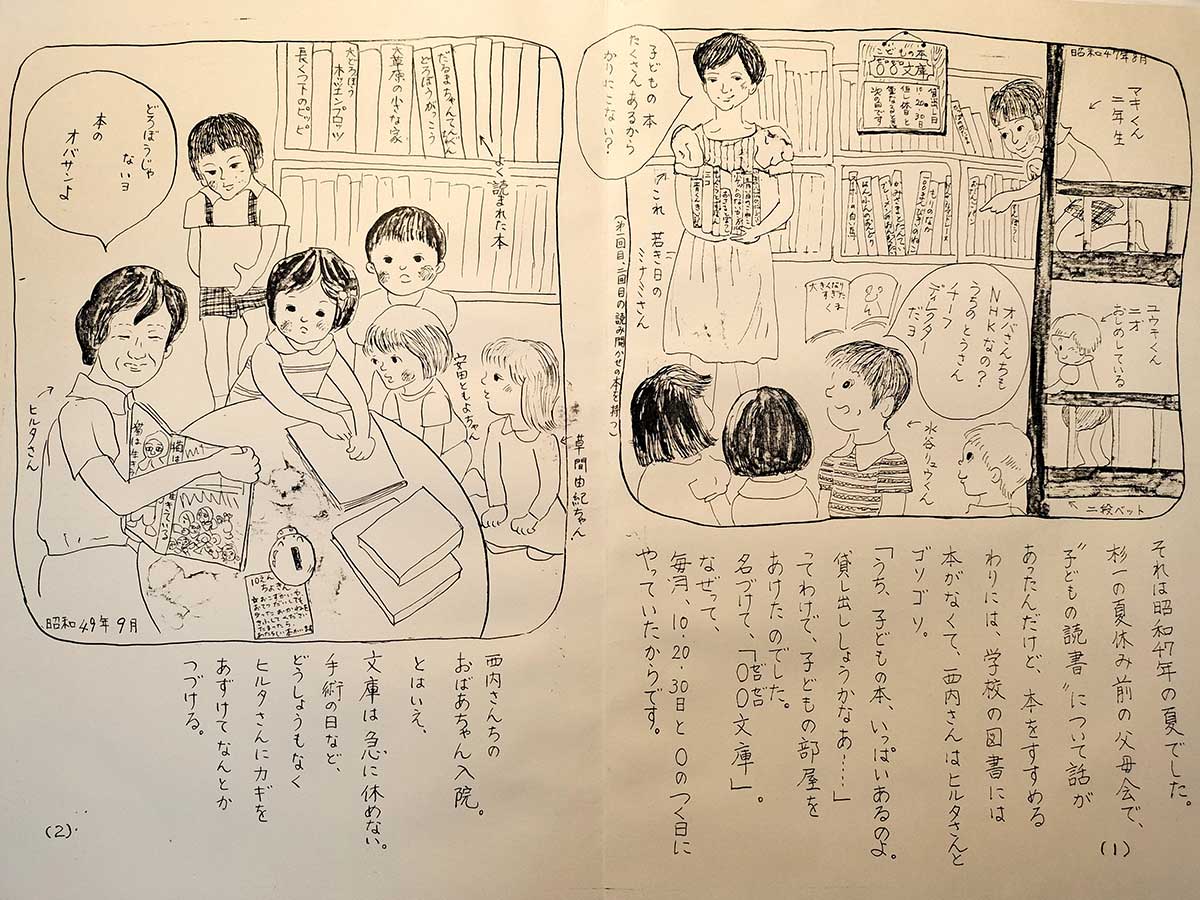 昭和47年8月
マキくん
二年生
ユウキくん
二才
おしめしている
二段ベット
こどもの本
貸出し日
10.20.30日
但し休日と
重なるときは
次の日です
子どもの本
たくさんあるから
かりにこない?
これ 若き日の
ミナミさん
(オ一回目、二回目の読み聞かせの本を持つ)
大きくなり
すぎた
くま
オバさんちも
NHKなの?
うちのとうさん
チーフ
ディレクター
だヨ
水谷リュウくん
それは昭和47年の夏でした。
杉一の夏休み前の父母会で、
〝子どもの読書〟について話が
あったんだけど、本をすすめる
わりには、学校の図書には
本がなくて、西内さんはヒルタさんと
ゴソゴソ。
「うち、子どもの本、いっぱいあるのよ。
貸し出ししょうかなあ……」
てわけで、子どもの部屋を
あけたのでした。
名づけて、「〇〇文庫」。
ゼゼ
なぜって、
毎月、10・20・30日と0のつく日に
やっていたからです。
(1)
だるまちゃんとてんぐちゃん
どろぼうがっこう
大草原の小さな家
大どろぼう
ホッツェンプロッツ
長くつ下のピッピ
よく読まれた本
どろぼうじゃ
ないヨ
本の
オバサンよ
ヒルタさん
安田ともよちゃん
草間由紀ちゃん
猫は生きている
10えん
ちょきん
昭和49年9月
西内さんちの
おばあちゃん入院。
とはいえ、
文庫は急に休めない。
手術の日など、
どうしょうもなく
ヒルタさんにカギを
あずけてなんとか
つづける。
(2)